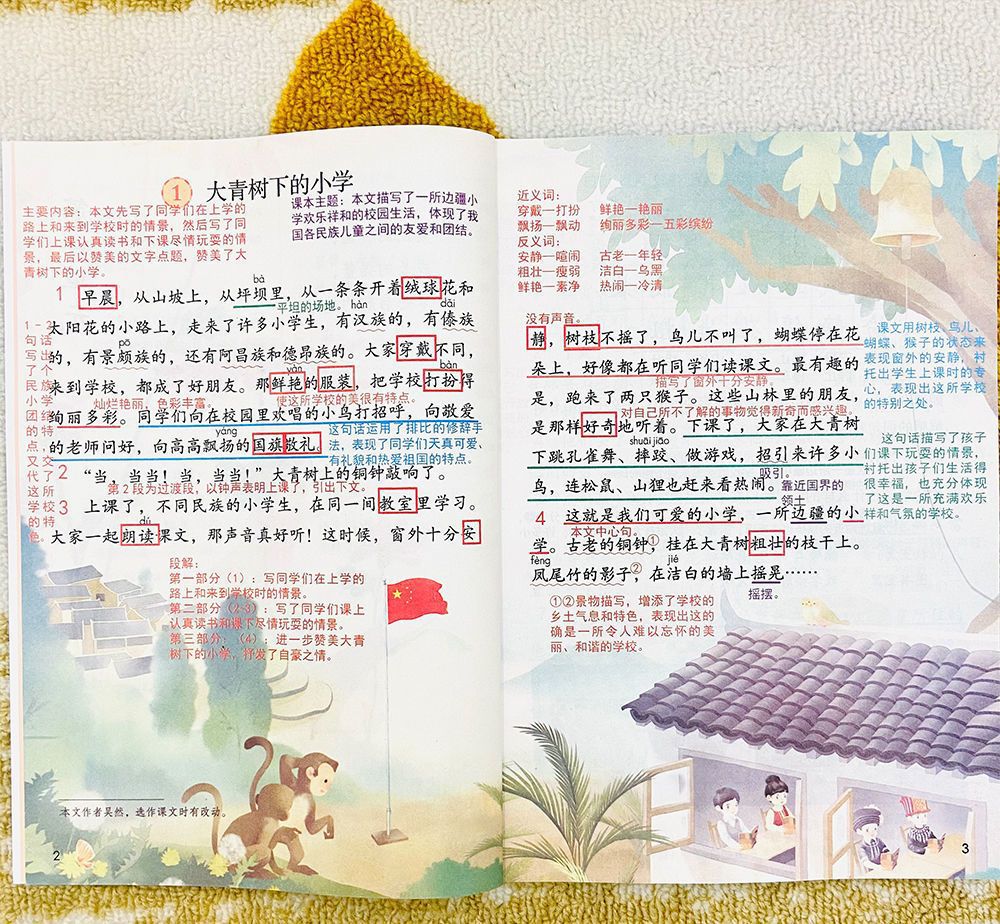 1 大青树下的小学
主要内容：本文先写了同学们在上学的
路上和来到学校时的情景，然后写了同
学们上课认真读书和下课尽情玩耍的情
景，最后以赞美的文字点题，赞美了大
青树下的小学。
课本主题：本文描写了一所边疆小
学欢乐祥和的校园生活，体现了我
国各民族儿童之间的友爱和团结。
bà
1 早晨，从山坡上，从坪坝里，从一条条开着绒球花和
平坦的场地。 hàn dǎi
太阳花的小路上，走来了许多小学生，有汉族的，有傣族
pō
的，有景颇族的，还有阿昌族和德昂族的。大家穿戴不同，
yàn bàn
来到学校，都成了好朋友。那鲜艳的服装，把学校打扮得
灿烂艳丽，色彩丰富。 使这所学校的美很有特点。
绚丽多彩。同学们向在校园里欢唱的小鸟打招呼，向敬爱
yáng
的老师问好，向高高飘扬的国旗敬礼。
这句话运用了排比的修辞手
法，表现了同学们天真可爱、
有礼貌和热爱祖国的特点。
2 “当，当当！当，当当！”大青树上的铜钟敲响了。
第2段为过渡段，以钟声表明上课了，引出下文。
3 上课了，不同民族的小学生，在同一间教室里学习。
dú
大家一起朗读课文，那声音真好听！这时候，窗外十分安
1－3
句话
写出
了个
民族
小学
团结
的特
点，
又交
代了
这所
学校
的特
色。
段解：
第一部分（1）：写同学们在上学的
路上和来到学校时的情景。
第二部分（2-3）：写了同学们课上
认真读书和课下尽情玩耍的情景。
第三部分：（4）：进一步赞美大青
树下的小学，抒发了自豪之情。
本文作者吴然，选作课文时有改动。
2
近义词：
穿戴—打扮 鲜艳—艳丽
飘扬—飘动 绚丽多彩—五彩缤纷
反义词：
安静—喧闹 古老—年轻
粗壮—瘦弱 洁白—乌黑
鲜艳—素净 热闹—冷清
没有声音。
静，树枝不摇了，鸟儿不叫了，蝴蝶停在花
朵上，好像都在听同学们读课文。最有趣的
描写了窗外十分安静。
是，跑来了两只猴子。这些山林里的朋友，
对自己所不了解的事物觉得新奇而感兴趣。
是那样好奇地听着。下课了，大家在大青树
shuāi jiāo
下跳孔雀舞、摔跤、做游戏，招引来许多小
吸引。
鸟，连松鼠、山狸也赶来看热闹。
靠近国界的
领土
4 这就是我们可爱的小学，一所边疆的小
本文中心句。
学。古老的铜钟①，挂在大青树粗壮的枝干上。
fèng jié
凤尾竹的影子②，在洁白的墙上摇晃……
摇摆。
课文用树枝、鸟儿、
蝴蝶、猴子的状态来
表现窗外的安静，衬
托出学生上课时的专
心，表现出这所学校
的特别之处。
这句话描写了孩子
们课下玩耍的情景，
衬托出孩子们生活得
很幸福，也充分体现
了这是一所充满欢乐
祥和气氛的学校。
①②景物描写，增添了学校的
乡土气息和特色，表现出这的
确是一所令人难以忘怀的美
丽、和谐的学校。
3